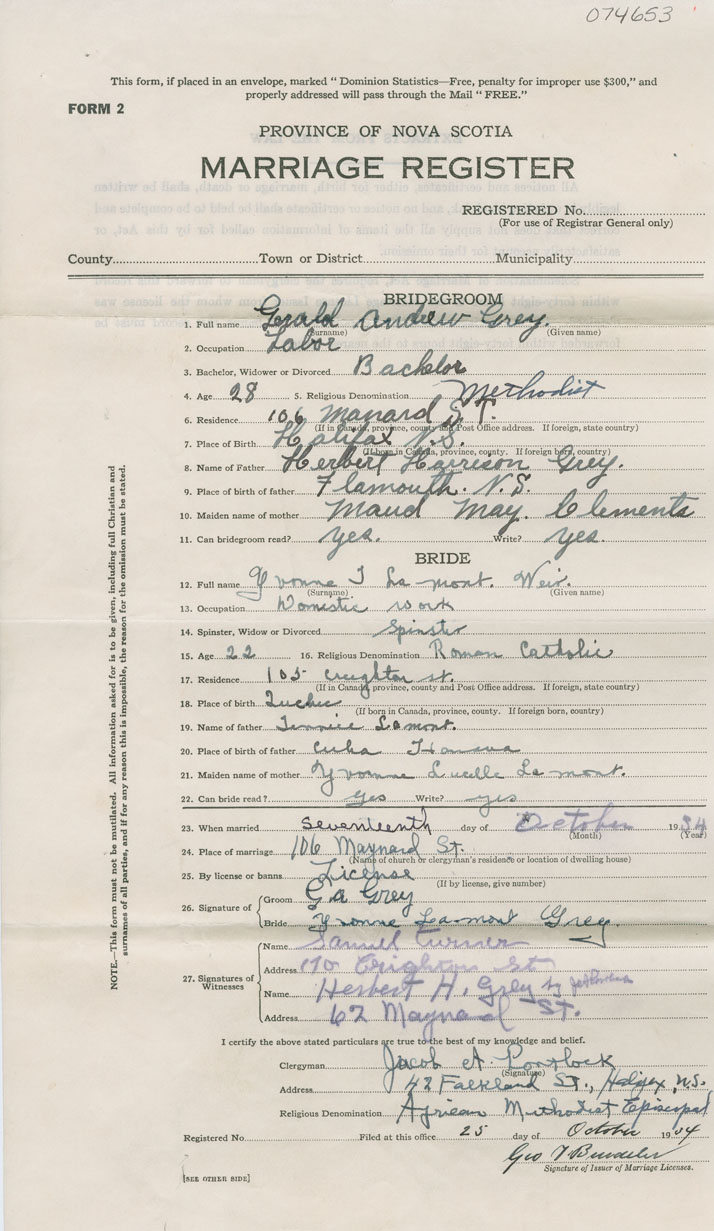 074653
This form, if placed in an envelope, marked “ Dominion Statistics—Free, penalty for improper use $300,” and
properly addressed will pass through the Mail “ FREE.”
FORM 2
PROVINCE OF NOVA SCOTIA
MARRIAGE REGISTER
REGISTERED No.
(For use of Registrar General only)
County Town or District Municipality
BRIDEGROOM
1. Full name Gerald Andrew Grey.
(Surname) (Given name)
2. Occupation Labor
3. Bachelor, Widower or Divorced Bachelor
4. Age 28 5. Religious Denomination Methodist
6. Residence 106 Manard S.T.
(If in Canada, province, county and Post Office address. If foreign, state country)
7. Place of Birth Halifax N.S.
(If born in Canada, province, county. If foreign born, country)
8. Name of Father Herbert Harreson Grey.
9. Place of birth of father Flamouth. N.S.
10. Maiden name of mother Maud May. Clements
11. Can bridegroom read? yes. Write? yes.
BRIDE
12. Full name Yvonne I La mont. Weir.
(Surname) (Given name)
13. Occupation Domestic work
14. Spinster, Widow or Divorced Spinster
15. Age 22 16. Religious Denomination Roman Catholic
17. Residence 105 Creighton st.
(If in Canada, province, county and Post Office address. If foreign, state country)
18. Place of birth Quebec
(If born in Canada, province, county. If foreign born, country)
19. Name of father Lamont.
20. Place of birth of father Cuba Havava
21. Maiden name of mother Yvonne Lucelle La mont.
22. Can bride read? yes Write? yes
23. When married seventeenth day of October 1934
(Month) (Year)
24. Place of marriage 106 Maynard St.
(Name of church or clergyman's residence or location of dwelling house)
25. By license or banns License
(If by license, give number)
26. Signature of
Groom G a Grey
Bride Yvonne La-mont Grey.
27. Signatures of Witnesses
Name Samuel Turner
Address 170 Crighton St
Name Herbert H. Grey by
Address 62 Maynard ST.
I certify the above stated particulars are true to the best of my knowledge and belief.
Clergyman Jacob A
(Signature)
Address 42 Falkland St., Halifax, N.S.
Religious Denomination African Methodist Episcopal
Registered No. Filed at this office 25 day of October 1934
Geo
Signature of Issuer of Marriage Licenses.
[SEE OTHER SIDE]
NOTE.—This form must not be mutilated. All information asked for is to be given, including full Christian and
surnames of all parties, and if for any reason this is impossible, the reason for the omission must be stated.